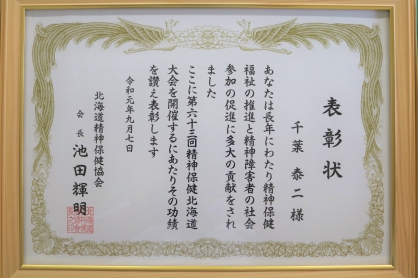 表彰状
千葉泰二様
あなたは長年にわたり精神保健
福祉の推進と精神障害者の社会
参加の促進に多大の貢献をされ
ました
ここに第六十三回精神保健北海道
大会を開催するにあたりその功績
を讃え表彰します
令和元年九月七日
北海道精神保健協会
会長 池田輝明